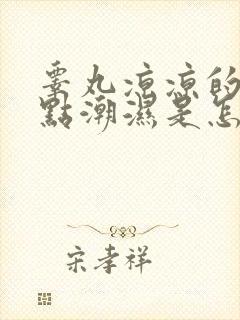 睪丸凉凉的
點潮濕是怎
宋孝祥